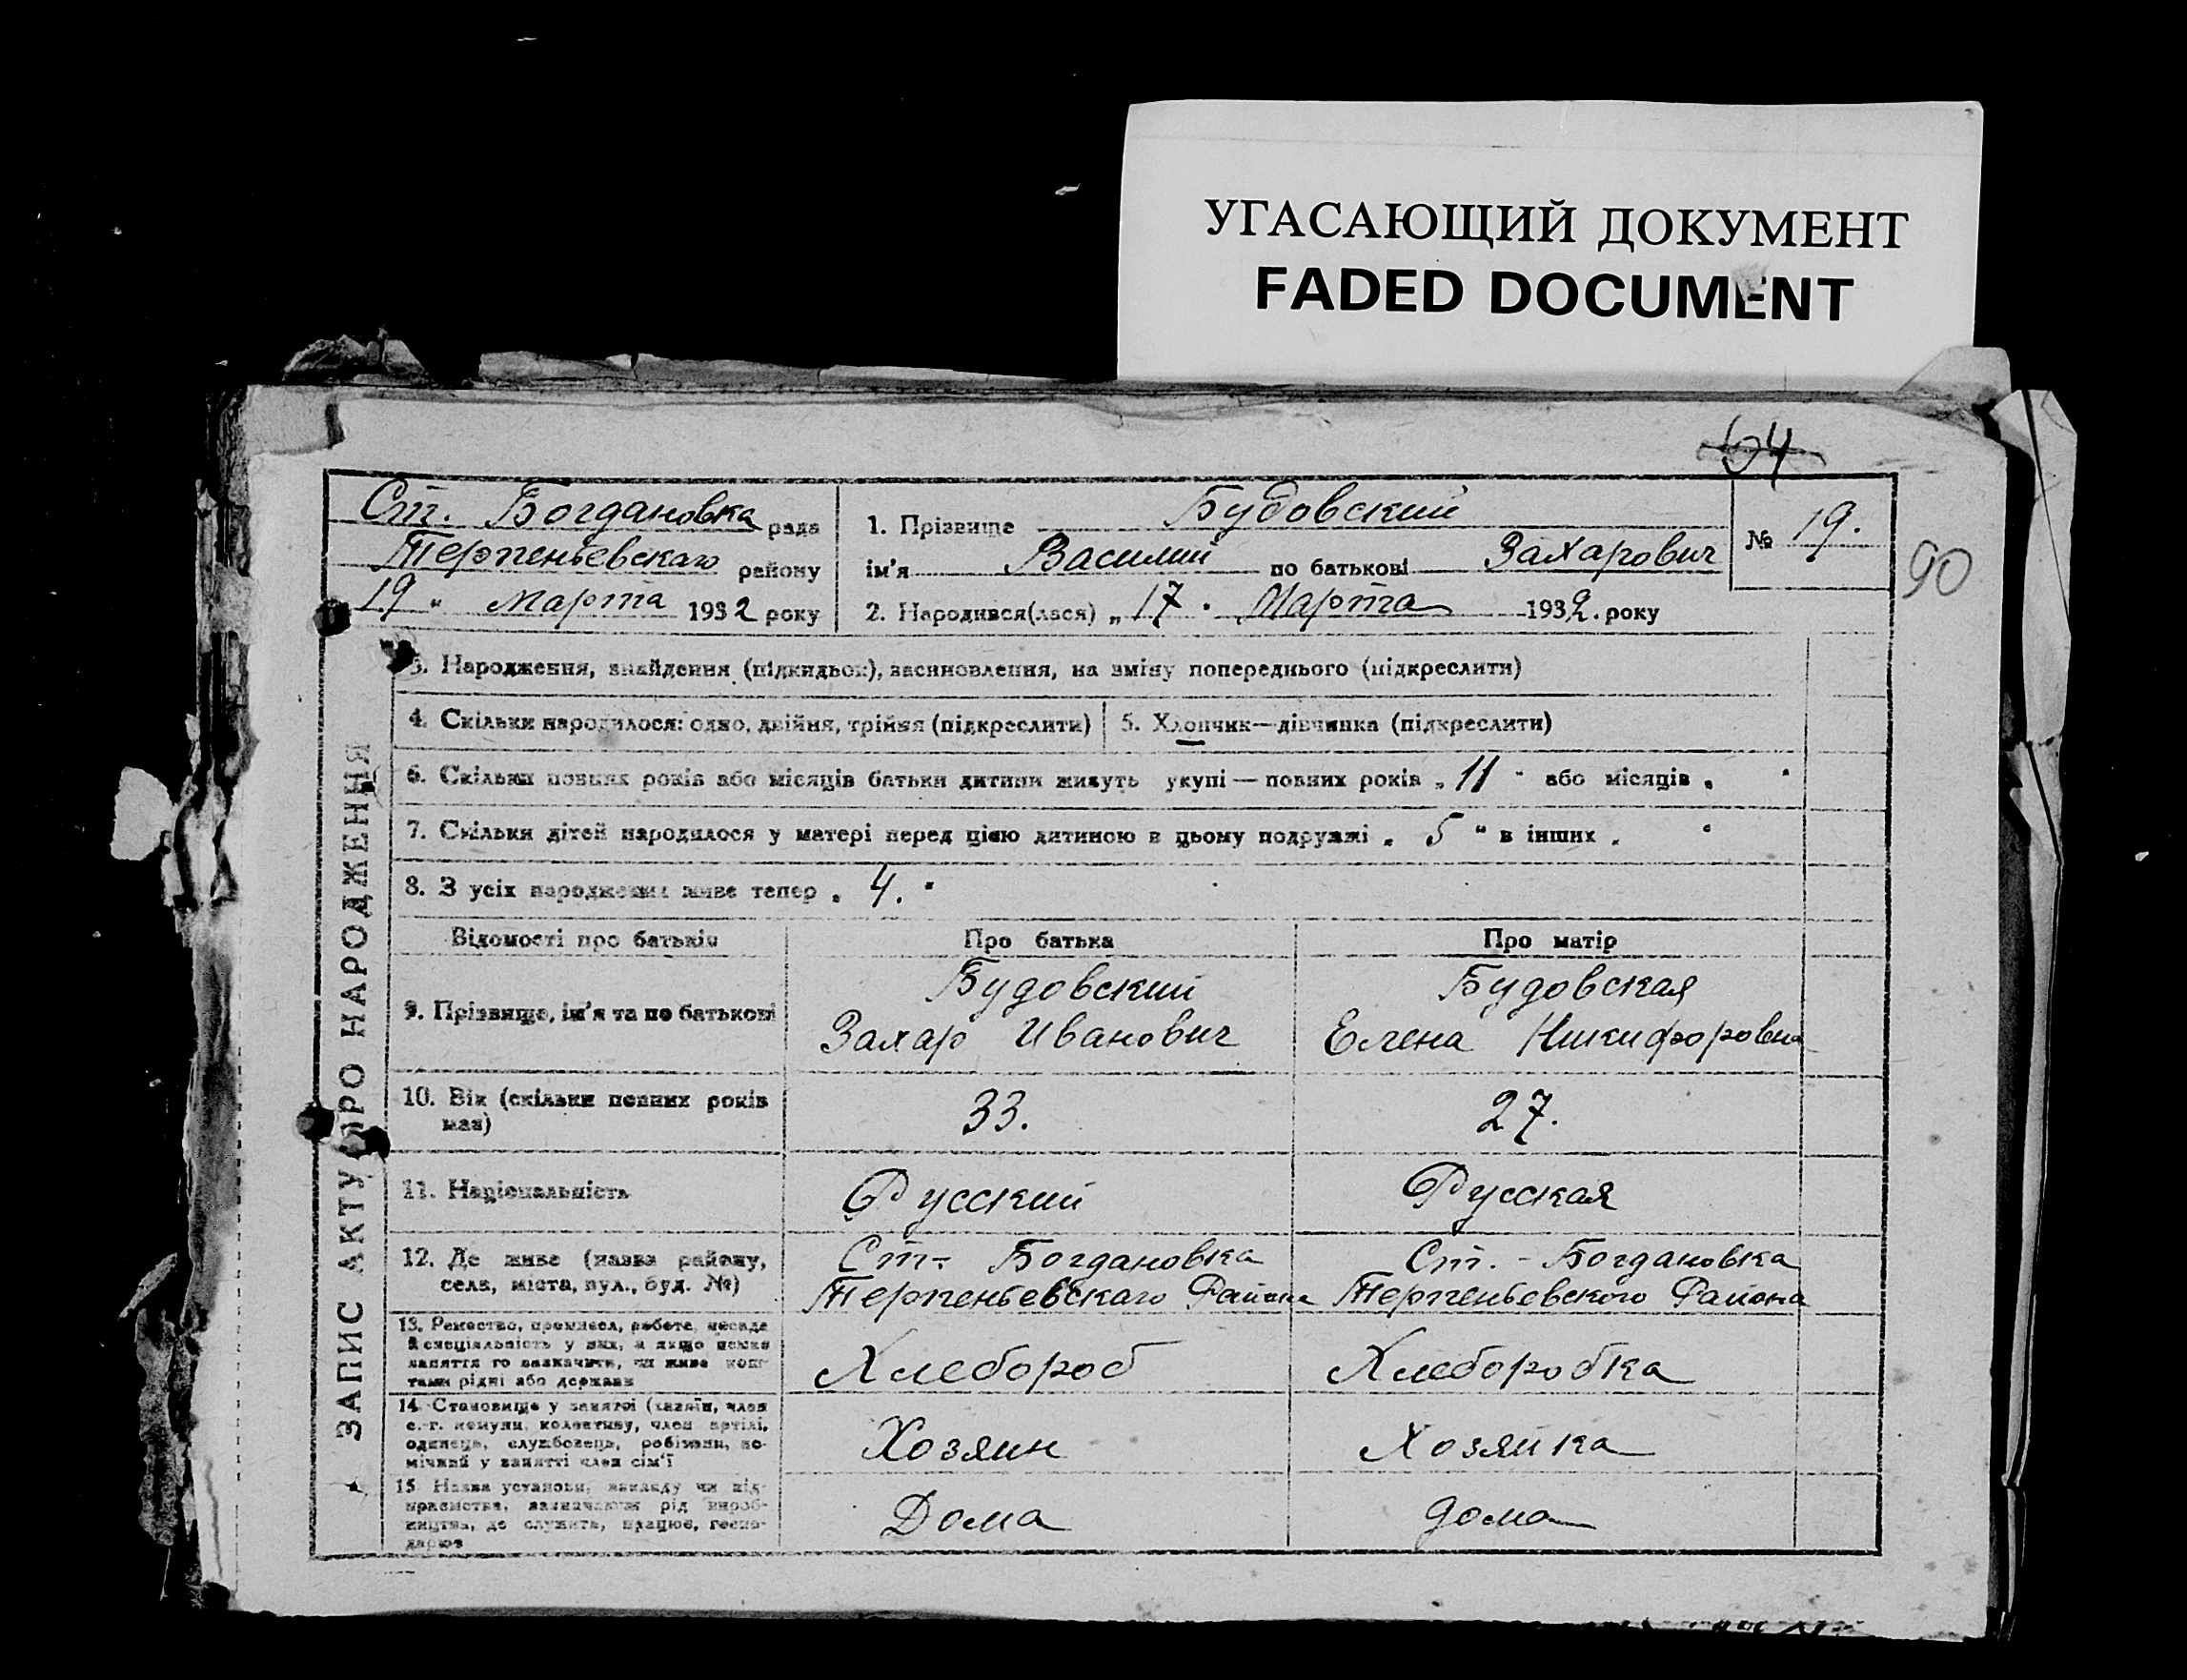 УГАСАЮЩИЙ ДОКУМЕНТ
FADED DOCUMENT
64
Ст. Богдановка рада
Терпеньевскаго району
19 " Марта 1932 року
1. Прізвище Будовский
ім'я Василий по батькові Захарович
2. Народився(лася) „ 17 . Марта 1932. року
№ 19.
90
ЗАПИС АКТУ ПРО НАРОДЖЕННЯ
3. Народження, знайдення (підкидьок), засиновлення, на зміну попереднього (підкреслити)
4. Скільки народилося: одно, двійня, трійня (підкреслити)
5. Хлопчик—дівчинка (підкреслити)
6. Скільки повних років або місяців батьки дитини живуть укупі — повних років „ 11 " або місяців
7. Скільки дітей народилося у матері перед цією дитиною в цьому подружжі „ 5 " в інших
8. З усіх народжених живе тепер „ 4. "
Відомості про батьків
Про батька
Про матір
9. Прізвище, ім'я та по батькові
Будовский
Захар Иванович
Будовская
Елена Никифоровна
10. Вік (скільки повних років
має)
33.
27.
11. Національність
Русский
Русская
12. Де живе (назва району,
села, міста, вул., буд. №)
Ст. Богдановка
Терпеньевскаго Района
Ст. - Богдановка
Терпеньевского Района
13. Ремество, промисел, робота, посада
й спеціяльність у них, а якщо немає
заняття то зазначити, чи живе кош-
тами рідні або держави
Хлебороб
Хлеборобка
14. Становище у занятті (хазяїн, член
с.-г. комуни, колективу, член артілі,
одинець, службовець, робітник, по-
мічний у занятті член сім'ї
Хозяин
Хозяйка
15. Назва установи, закладу чи під-
приємства, зазначаючи рід вироб-
ництва, де служить, працює, госпо-
дарює
Дома
дома